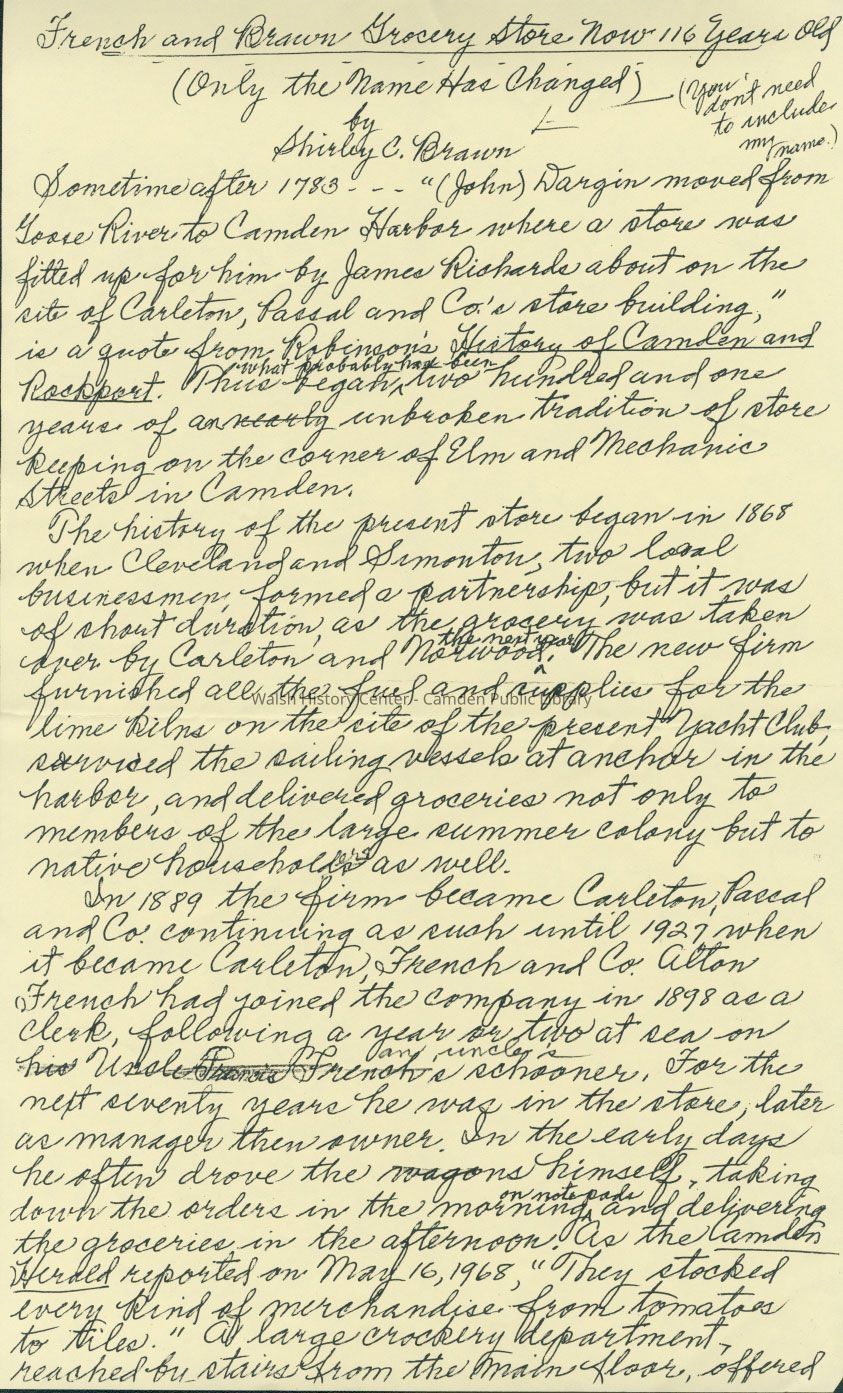 French and Brawn Grocery Store Now 116 Years Old
(Only the Name Has Changed)
(You don't need to include my name.)
by
Shirley C. Brawn
Sometime after 1783 - - - "(John) Dargin moved from
Goose River to Camden Harbor where a store was
fitted up for him by James Richards about on the
site of Carleton, Passal and Co.'s store building,"
is a quote from Robinson's History of Camden and
Rockport. Thus began what probably has been two hundred and one
years of an nearly unbroken tradition of store
keeping on the corner of Elm and Mechanic
Streets in Camden.
The history of the present store began in 1868
when Cleveland and Simonton, two local
businessmen, formed a partnership, but it was
of short duration, as the grocery was taken
over by Carleton and Norwood the next year. The new firm
furnished all the fuel and supplies for the
Walsh History Center - Camden Public Library
lime kilns on the site of the present Yacht Club,
serviced the sailing vessels at anchor in the
harbor, and delivered groceries not only to
members of the large summer colony but to
native households as well.
In 1889 the firm became Carleton, Pascal
and Co. continuing as such until 1927 when
it became Carleton, French and Co. Alton
French had joined the company in 1898 as a
clerk, following a year or two at sea on
his Uncle Francis French's an uncle's schooner. For the
next seventy years he was in the store, later
as manager then owner. In the early days
he often drove the wagons himself, taking
down the orders in the morning on note pads and delivering
the groceries in the afternoon. As the Camden
Herald reported on May 16, 1968, "They stocked
every kind of merchandise from tomatoes
to tiles." A large crockery department,
reached by stairs from the main floor, offered